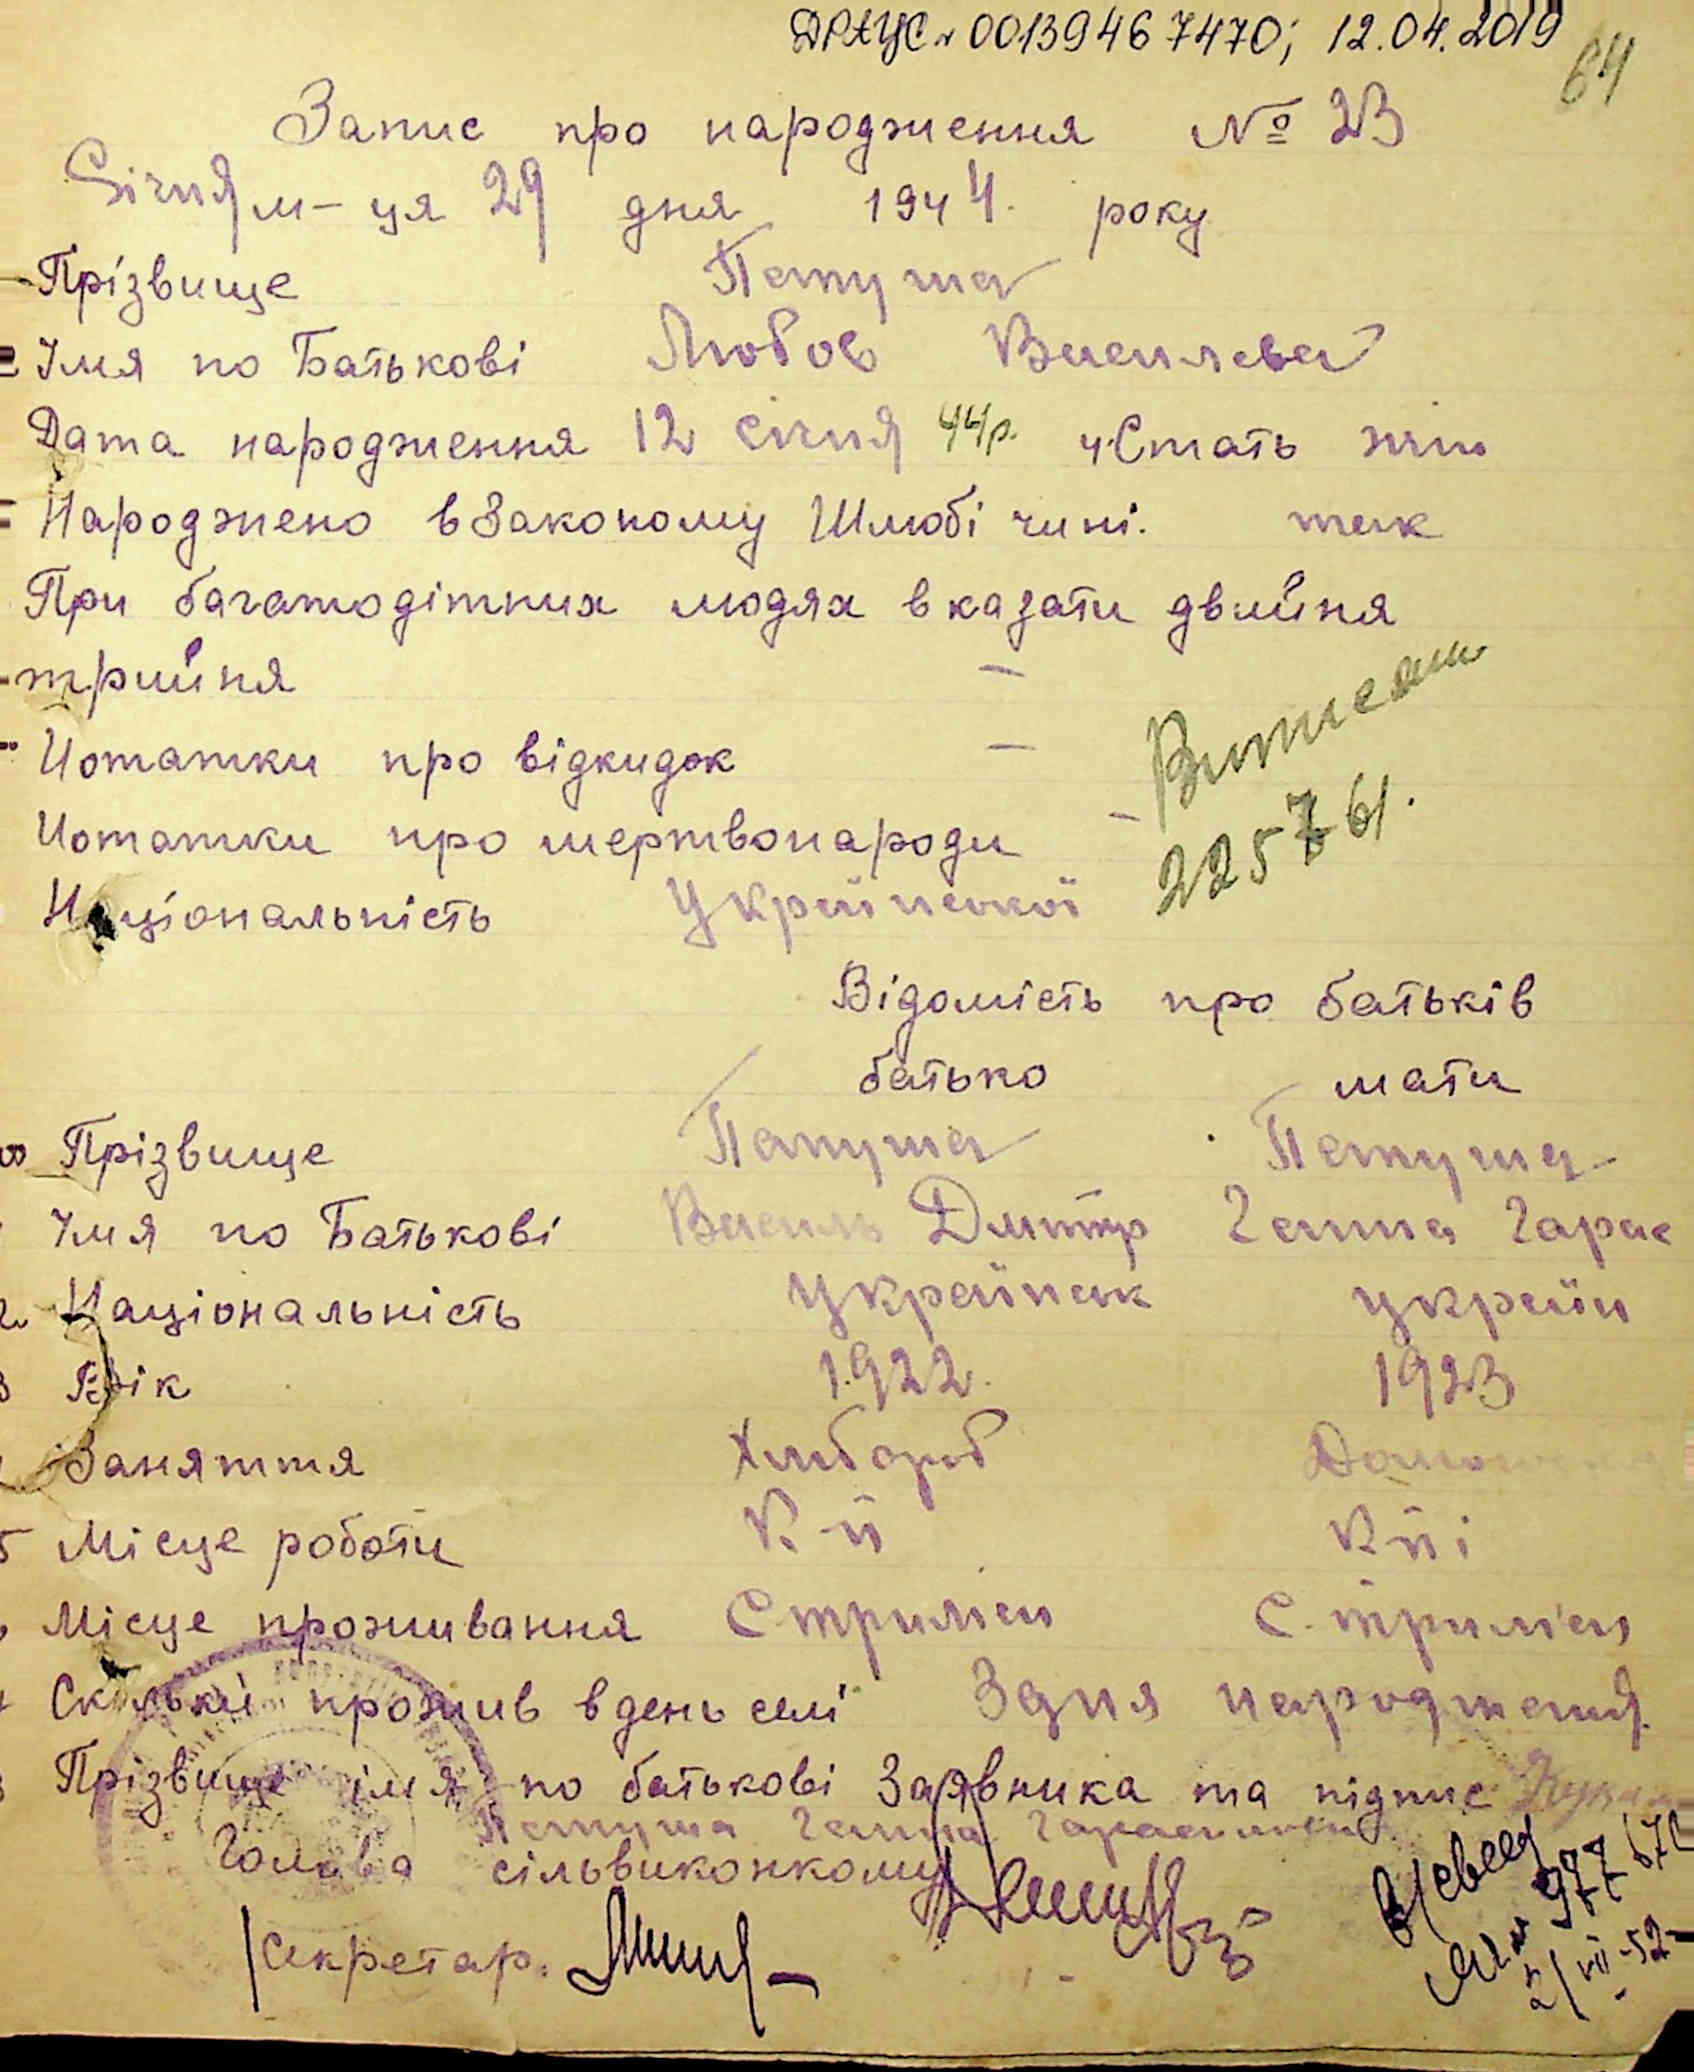 ДРАЦС № 00139467470; 12.04.2019
64
Запис про народження № 23
Січня м-ця 29 дня 1944. року
Прізвище Папуша
Імя по Батькові Любов Василева
Дата народження 12 січня 44р. Стать жін
Народжено в Законому Шлюбі чи ні. так
При багатодітних людях вказати двийня
трийня –
Нотатки про відкидок –
Нотатки про мертвонароди –
22 5 7 61.
Національність Української
Відомість про батьків
батько мати
Прізвище Папуша Папуша
Імя по Батькові Василь Дмитр Ганна Гарас
Національність україньск україн
Рік 1922. 1923
Заняття Хлибороб
Місце роботи
Місце проживання
Скільки прожив в день селі З дня народженя
Прізвище імя по батькові Заявника та підпис
Папуша Ганна
Голова сільвиконкому
Секретар.